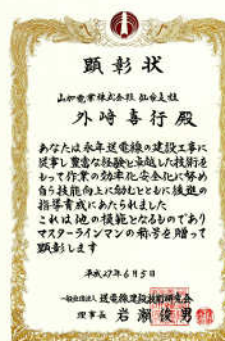 顕彰状
山加電業株式会社 仙台支社
外崎喜行殿
あなたは永年送電線の建設工事に
従事し豊富な経験と卓越した技術を
もって作業の効率化安全化に努め
自ら技能向上に励むとともに後進の
指導育成にあたられました
これは他の模範となるものであり
マスターラインマンの称号を贈って
顕彰します
平成27年6月5日
一般社団法人 送電線建設技術研究会
理事長 岩瀬俊男